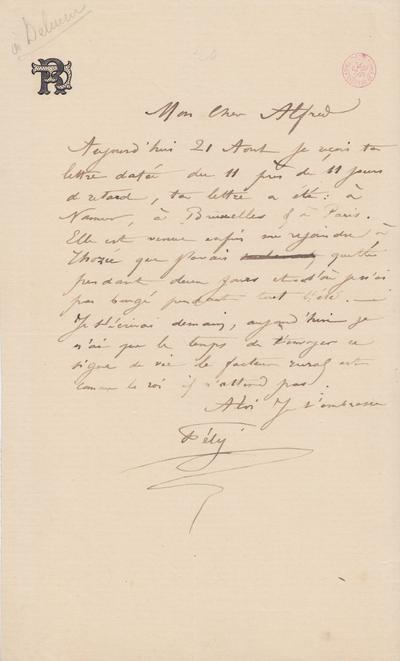 à Delvaux
Mon Cher Alfred
Aujourd'hui 21 Aout je reçois ta
lettre datée du 11 près de 11 jours
de retard, ta lettre a été: à
Namur, à Bruxelles & à Paris.
Elle est venue enfin me rejoindre à
Thozée que j'avais quitté
pendant deux jours et d'où je n'ai
pas bougé pendant tout l'été. —
Je t'écrirai demain, aujourd'hui je
n'ai que le temps de t'envoyer ce
signe de vie le facteur rural est
comme le roi il n'attend pas.
A toi Je t'embrasse
Fély